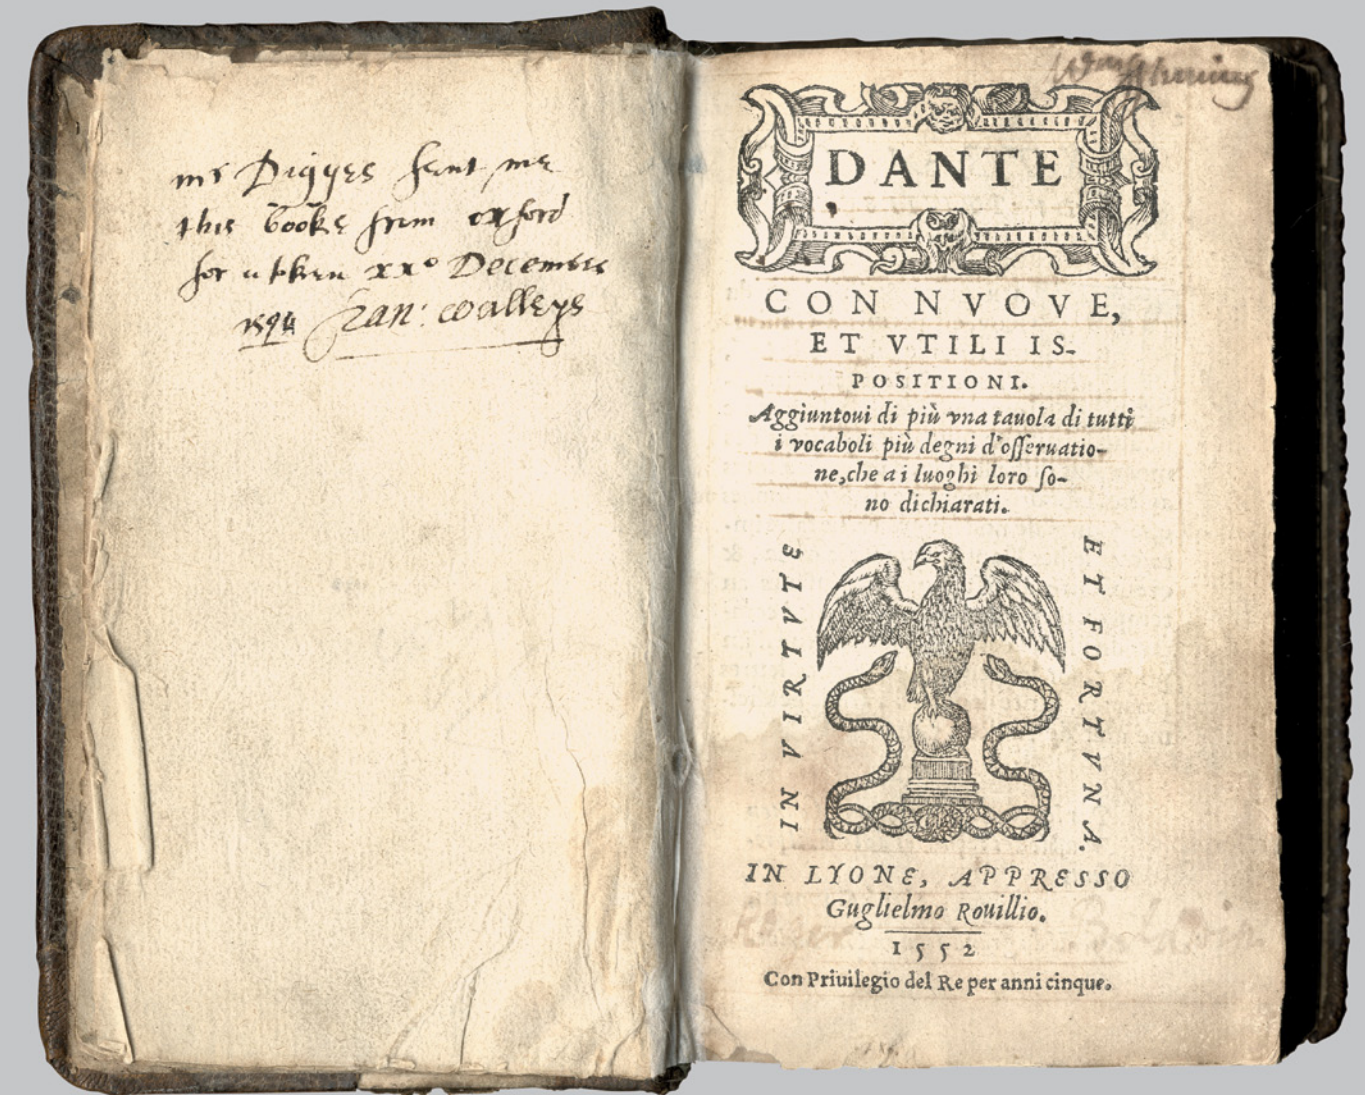 mr Digges sent me
this booke from oxford
for a token xxo December
1594 Fran: Walleys
DANTE
CON NVOVE,
ET VTILI IS-
POSITIONI.
Aggiuntoui di più vna tauola di tutti
i vocaboli più degni d'osseruatio-
ne, che a i luoghi loro so-
no dichiarati.
IN VIRTVTE
ET FORTVNA.
IN LYONE, APPRESSO
Guglielmo Rouillio.
1552
Con Priuilegio del Re per anni cinque.